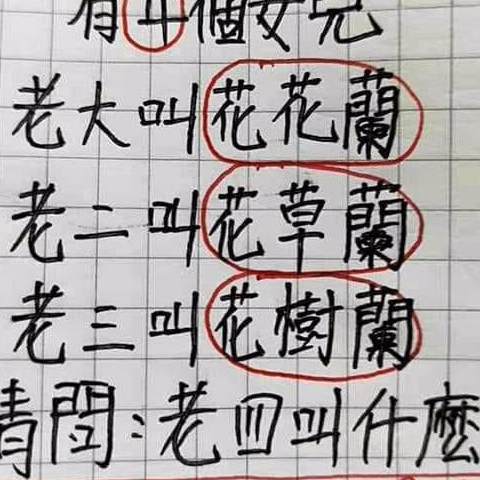 有4個女兒
老大叫花花蘭
老二叫花草蘭
老三叫花樹蘭
請問:老四叫什麼